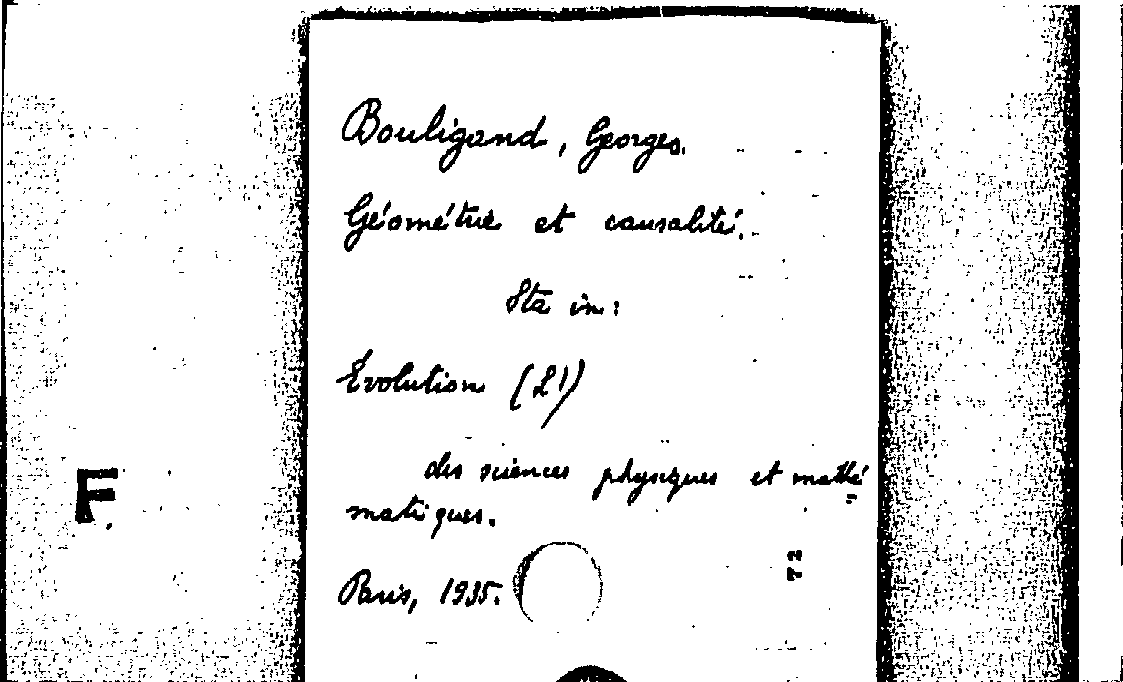 Bouligand, Georges.
Géométrie et causalité.
Sta in:
Évolution (L')
des sciences physiques et mathé=
matiques.
Paris, 1935.
F
72